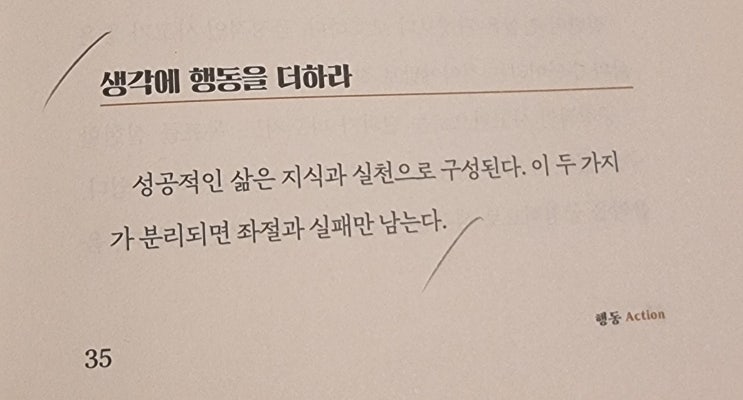 생각에 행동을 더하라
성공적인 삶은 지식과 실천으로 구성된다. 이 두 가지
가 분리되면 좌절과 실패만 남는다.
행동 Action
35